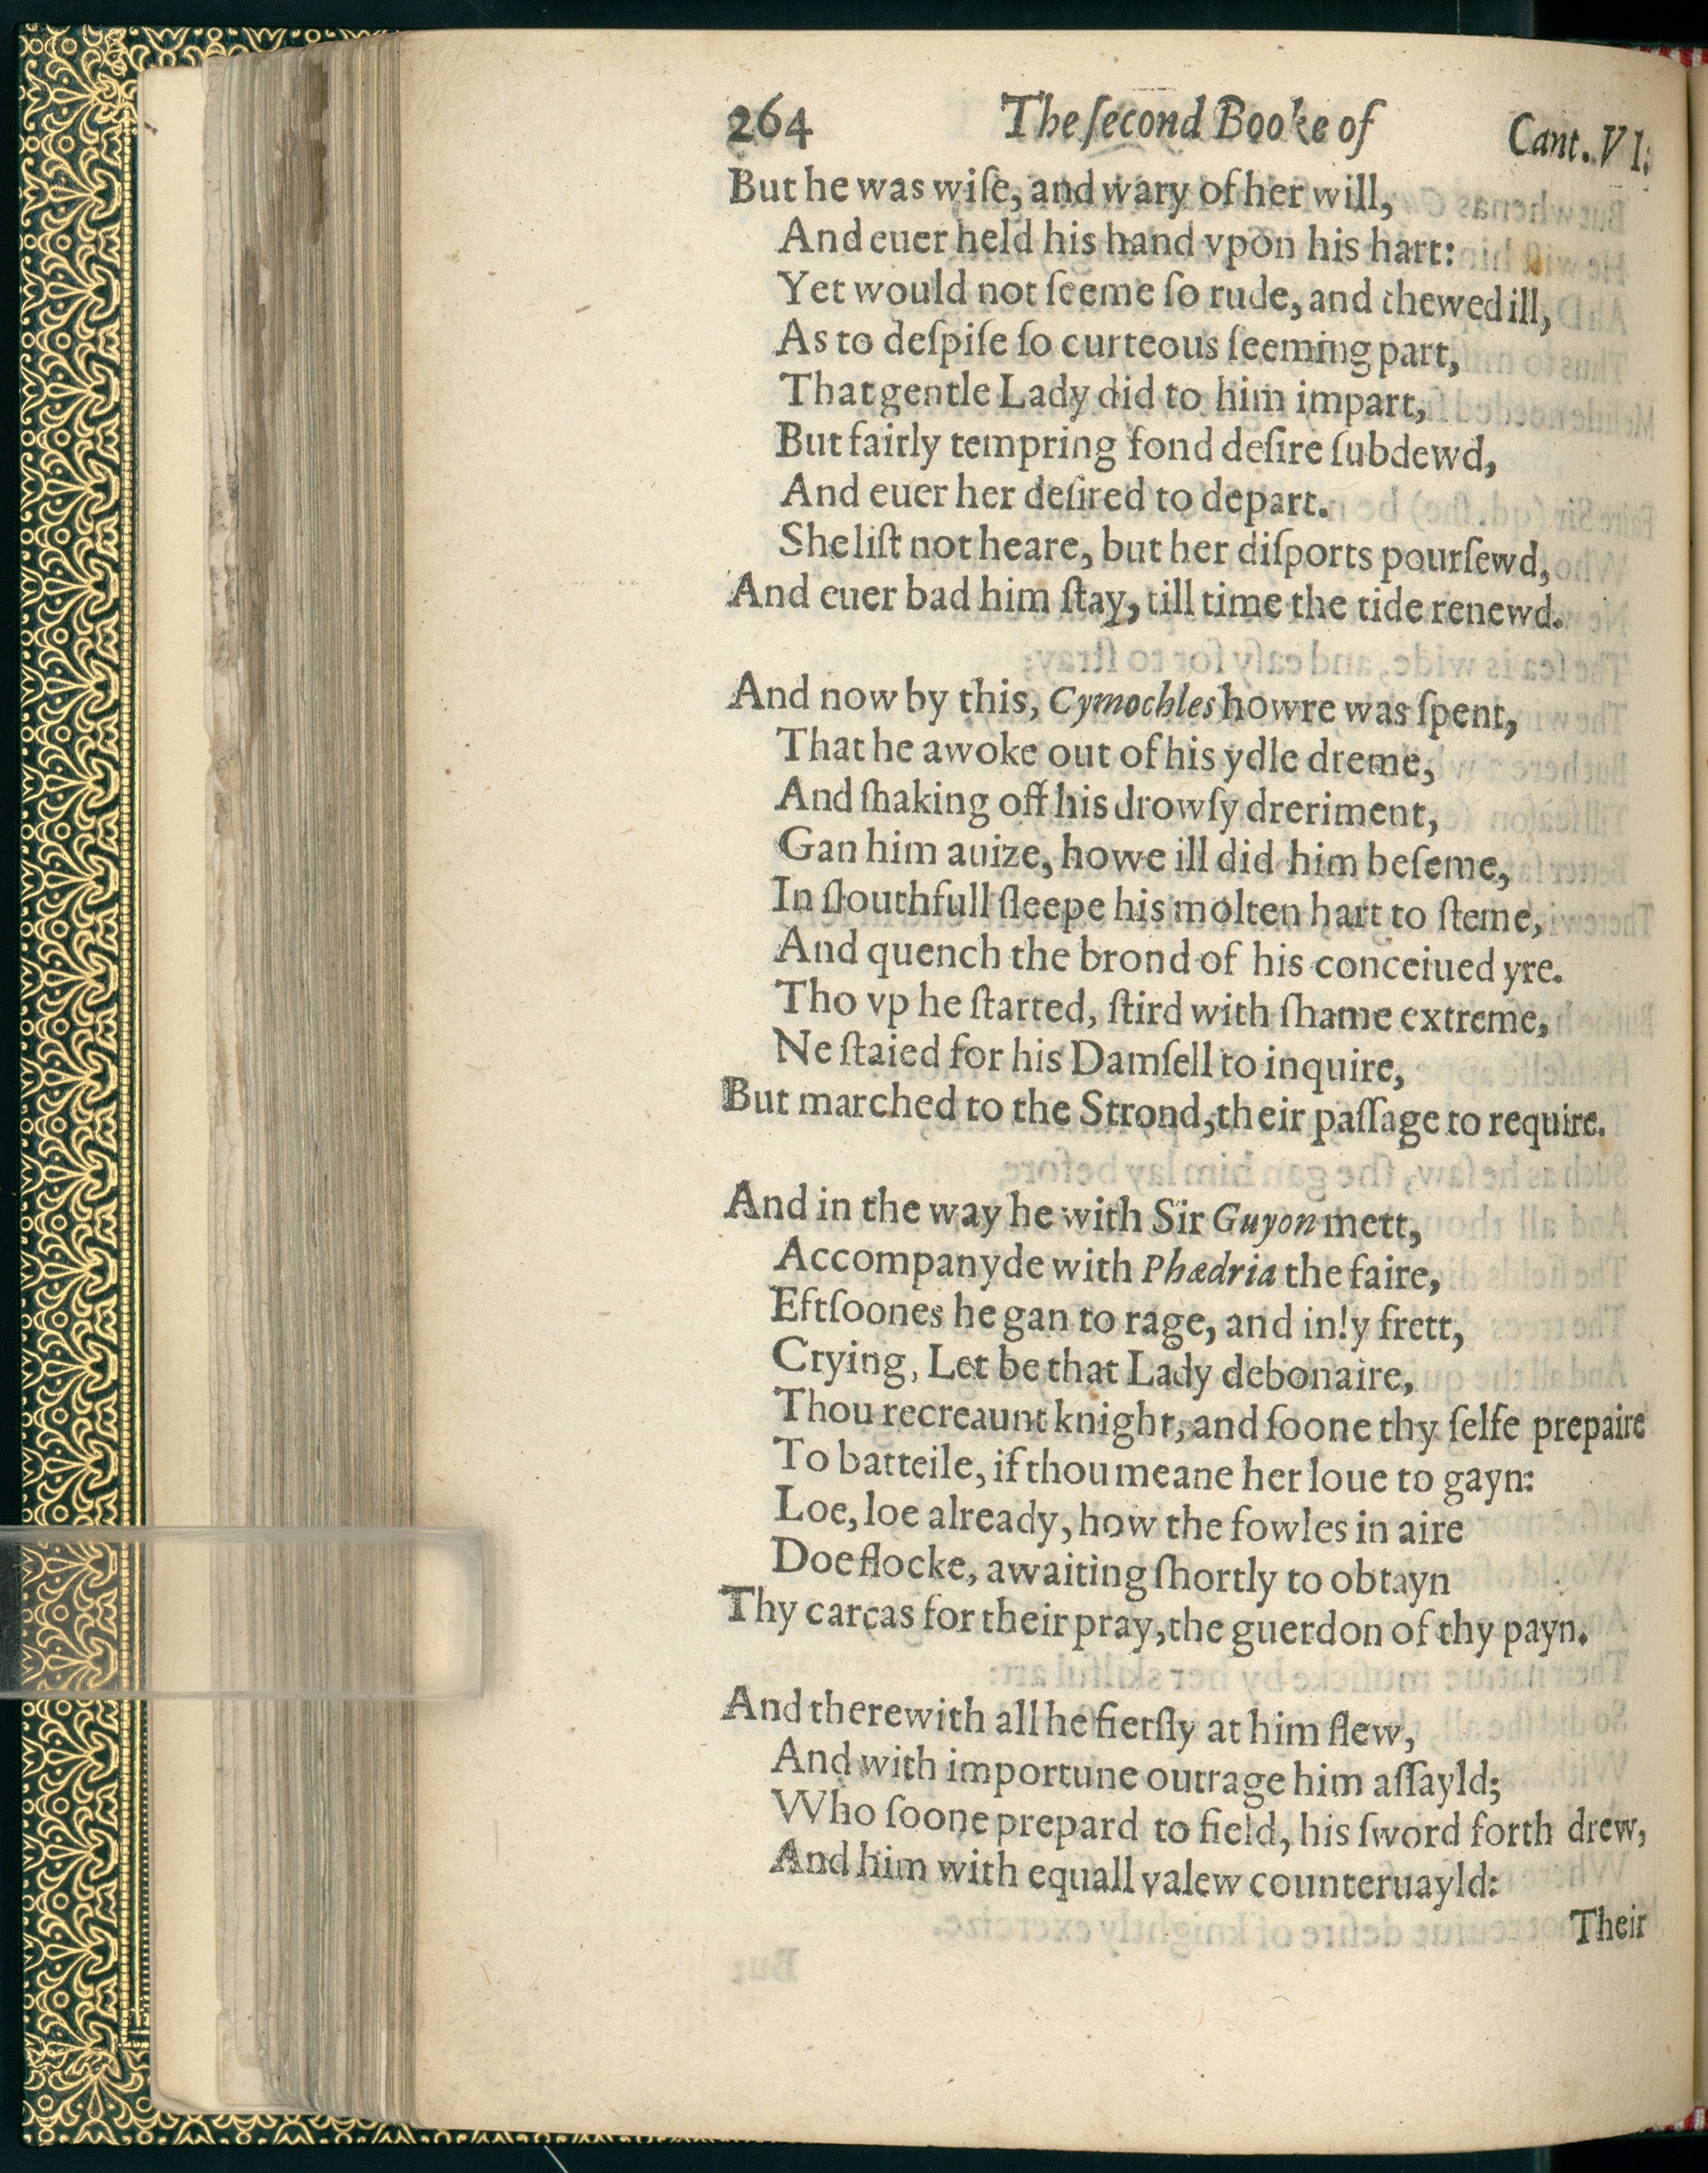 264 The ſecond Booke of Cant. VI.
But he was wiſe, and wary of her will,
And euer held his hand vpon his hart:
Yet would not ſeeme ſo rude, and thewed ill,
As to deſpiſe ſo curteous ſeeming part,
That gentle Lady did to him impart,
But fairly tempring fond deſire ſubdewd,
And euer her deſired to depart.
She liſt not heare, but her diſports pourſewd,
And euer bad him ſtay, till time the tide renewd.
And now by this, Cymochles howre was ſpent,
That he awoke out of his ydle dreme,
And ſhaking off his drowſy dreriment,
Gan him auize, howe ill did him beſeme,
In ſlouthfull ſleepe his molten hart to ſteme,
And quench the brond of his conceiued yre.
Tho vp he ſtarted, ſtird with ſhame extreme,
Ne ſtaied for his Damſell to inquire,
But marched to the Strond, their paſſage to require.
And in the way he with Sir Guyon mett,
Accompanyde with Phædria the faire,
Eftſoones he gan to rage, and inly frett,
Crying, Let be that Lady debonaire,
Thou recreaunt knight, and ſoone thy ſelfe prepaire
To batteile, if thou meane her loue to gayn:
Loe, loe already, how the fowles in aire
Doe flocke, awaiting ſhortly to obtayn
Thy carcas for their pray, the guerdon of thy payn.
And therewith all he fierſly at him flew,
And with importune outrage him aſſayld;
Who ſoone prepard to field, his ſword forth drew,
And him with equall valew counteruayld:
Their